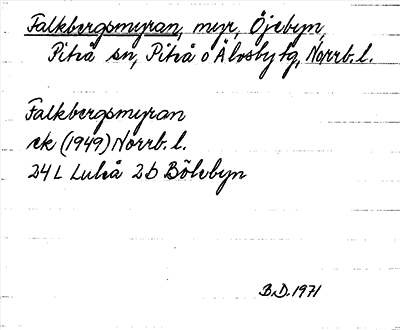 Falkbergsmyran, myr, Öjebyn,
Piteå sn, Piteå o Älvsby tg, Norrb. l.
Falkbergsmyran
ek (1949) Norrb. l.
24 L Luleå 2 b Bölebyn
B.D. 1971